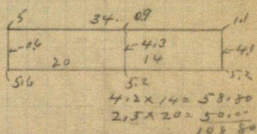 5 34. 0.9 1.1
-0.6 -4.3 -4.1
20 14
5.6 5.2 5.2
4.2 x 14 = 58.80
2.5 x 20 = 50.00
108.80